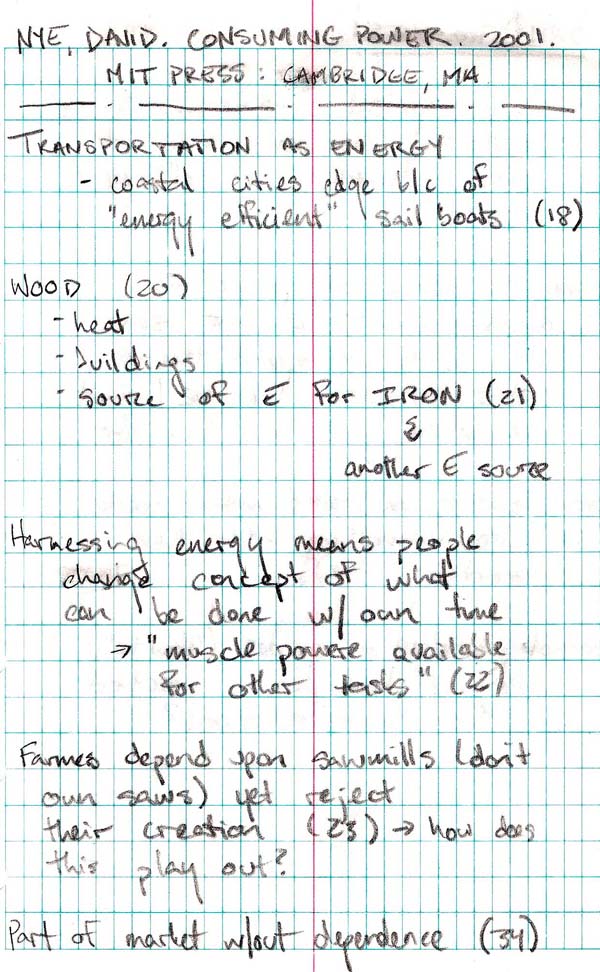 NYE, DAVID. CONSUMING POWER. 2001.
MIT PRESS: CAMBRIDGE, MA
TRANSPORTATION AS ENERGY
- coastal cities edge b/c of
"energy efficient" sail boats (18)
WOOD (20)
- heat
- buildings
- source of E for IRON (21)
&
another E source
Harnessing energy means people
change concept of what
can be done w/ own time
→ "muscle powere available
for other tasks" (22)
Farmes depend upon sawmills (don't
own saws) yet reject
their creation (23) → how does
this play out?
Part of market w/out dependence (34)